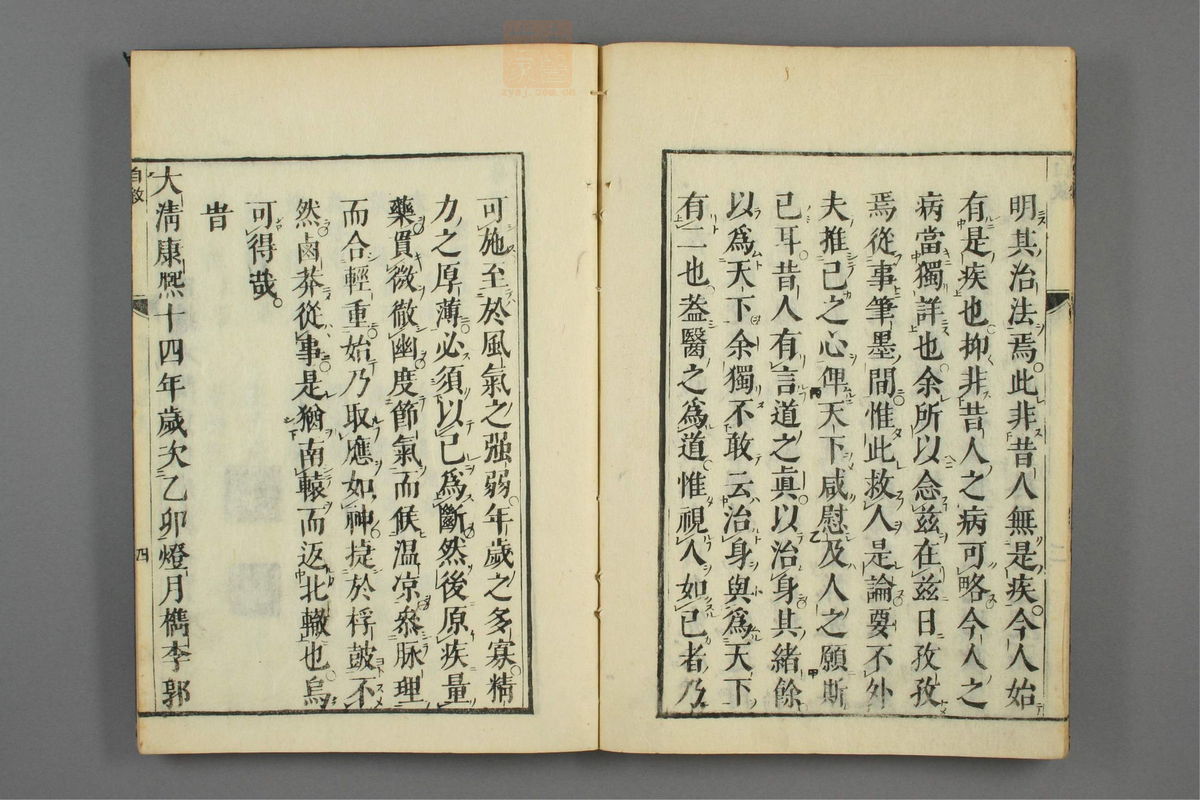 明其治法焉此非昔人無是疾今人始
有是疾也抑非昔人之病可略今人之
病當獨詳也余所以念茲在茲日孜孜
焉從事筆墨間惟此救人是論要不外
夫推己之心俾天下咸慰及人之願斯
己耳昔人有言道之眞以治身其緒餘
以爲天下余獨不敢云治身與爲天下
有二也葢醫之爲道惟視人如己者乃
可施至於風氣之强弱年歲之多寡精
力之厚薄必須以己爲斷然後原疾量
藥貫微徹幽度節氣而候温凉叅脉理
而合輕重始乃取應如神捷於桴皷不
然鹵莽從事是猶南轅而返北轍也烏
可得哉
旹
大淸康熙十四年歲次乙卯燈月檇李郭
自敘
四
zysj.com.cn